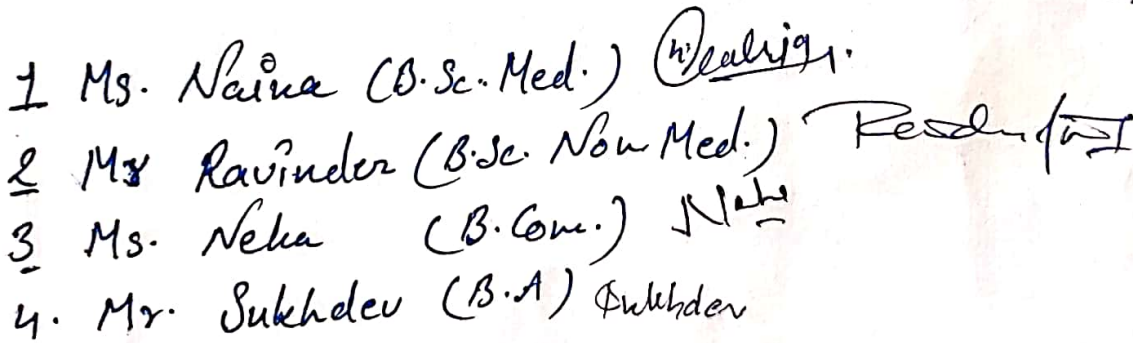 1 Ms. Naina (B.Sc. Med.)
2 Mr Ravinder (B.Sc. Non Med.)
3 Ms. Neha (B.Com.) Neha
4. Mr. Sukhdev (B.A) Sukhdev